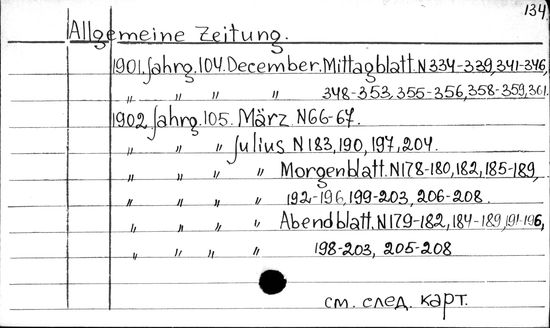 134
Allgemeine Zeitung.
1901. Jahrg. 104. December. Mittagblatt. N 334-339, 341-346,
" " " " 348-353, 355-356, 358-359, 361.
1902. Jahrg. 105. März N 66-67.
" " " Julius N 183, 190, 197, 204.
" " " " Morgenblatt. N 178-180, 182, 185-189,
" " " " 192-196, 199-203, 206-208.
" " " " Abendblatt. N 179-182, 184-189, 191-196,
" " " " 198-203, 205-208
см. след. карт.